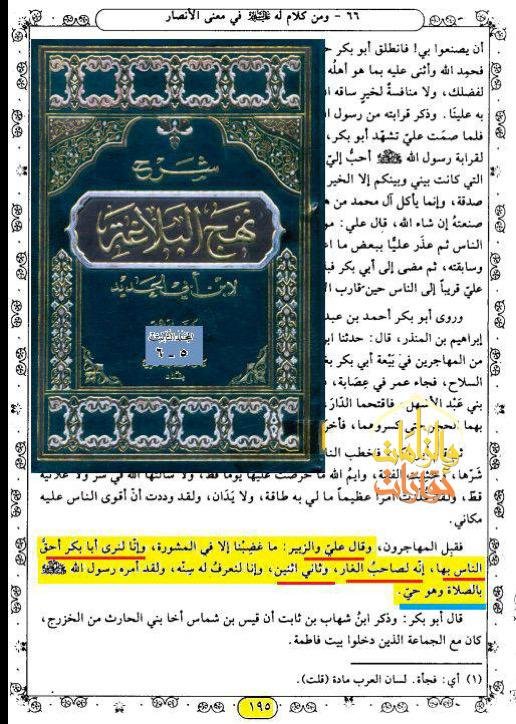 ٦٦ - ومن كلام له ﷺ في معنى الأنصار
أن يصنعوا بي! فانطلق أبو بكر
فحمد الله وأثنى عليه بما هو أهله
لفضلك، ولا منافسةً لخيرٍ ساقه
به علينا. وذكر قرابته من رسول
فلما صمَت عليّ تشهّد أبو بكر،
لقرابة رسول الله ﷺ أحبُّ إليّ
التي كانت بيني وبينكم إلا الخير
صدقة، وإنما يأكل آل محمد من
صنعتهُ إن شاء الله، قال علي:
الناس ثم عذّر عليًّا ببعض ما
وسابقته، ثم مضى إلى أبي بكر
عليّ قريباً إلى الناس حين قارب
وروى أبو بكر أحمد بن عبد
إبراهيم بن المنذر، قال: حدثنا
من المهاجرين في بَيْعة أبي بكر
السلاح، فجاء عمر في عِصَابة،
بني عَبْد الأشهل، فاقتحما الدّارَ،
بهما الحجر حتى كسروهما،
شرح
نهج البلاغة
لابن أبي الحديد
٥ - ٦
بغداد
فخطب
شَرّها، وايمُ الله ما حَرَصت عليها يوماً قطّ، ولا سألتها الله في سرّ ولا علانية
قطّ، ولقد أمراً عظيماً ما لي به طاقة، ولا يَدَان، ولقد وددت أنّ أقوى الناس عليه
مكاني.
فقبل المهاجرون، وقال عليّ والزبير: ما غضِبْنا إلا في المشورة، وإنّا لنرى أبا بكر أحقُّ
الناس بها، إنّه لصاحبُ الغار، وثاني اثنين، وإنا لنعرفُ له سِنّه، ولقد أمره رسول الله ﷺ
بالصلاة وهو حيّ.
قال أبو بكر: وذكر ابنُ شهاب بن ثابت أن قيس بن شماس أخا بني الحارث من الخزرج،
كان مع الجماعة الذين دخلوا بيت فاطمة.
(١) أي: فجأة. لسان العرب مادة (قلت).
١٩٥